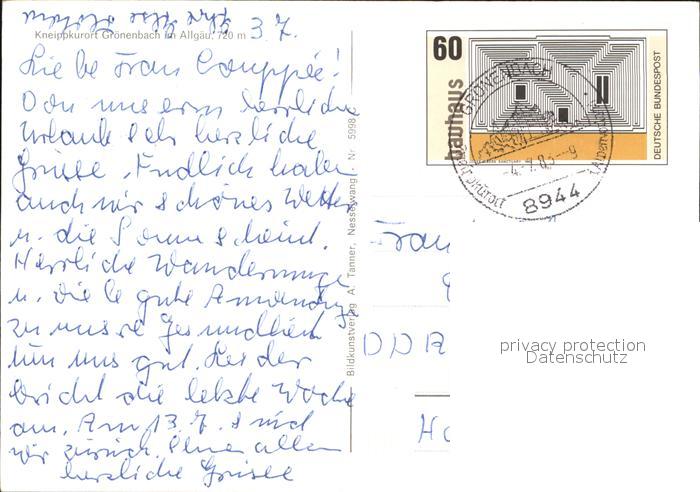 Kneippkurort Grönenbach im Allgäu, 720 m
3 7.
Liebe Frau Couppée!
Von unserm herrlichen
Urlaub sehr herzliche
Grüsse. Endlich haben
auch wir schönes Wetter
u. die Sonne scheint.
Herrliche Wanderungen
u. viele gute Anwendungen
zu unsre Gesundheit
tun uns gut. Leider
bricht die letzte Woche
an. Am 13. 7. sind
wir zurück. Ihnen allen
herzliche Grüsse
Bildkunstverlag A. Tanner, Nesselwang - Nr 5998
60
bauhaus
DEUTSCHE BUNDESPOST
GRÖNENBACH
8944
Frau
DDR
privacy protection
Datenschutz